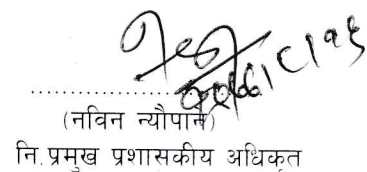 (नविन न्यौपाने)
नि.प्रमुख प्रशासकीय अधिकृत